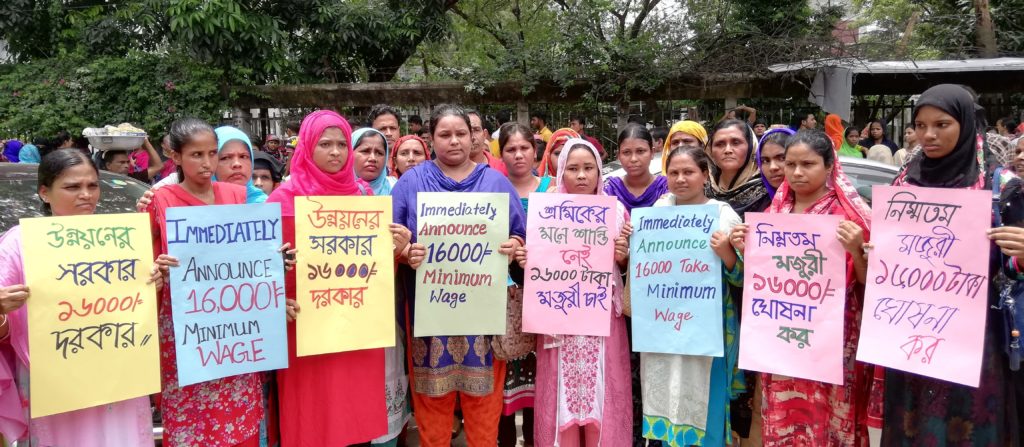 উন্নয়নের
সরকার
১৬০০০/-
দরকার //
IMMEDIATELY
ANNOUNCE
16,000/-
MINIMUM
WAGE
উন্নয়নের
সরকার
১৬০০০/-
দরকার
Immediately
Announce
16000/-
Minimum
Wage
শ্রমিকের
মনে শান্তি
নেই
১৬০০০ টাকা
মজুরী চাই
Immediately
Announce
16000 Taka
Minimum
Wage
নিম্মতম
মজুরী
১৬০০০/-
ঘোষনা
কর
নিম্মতম
মজুরী
১৬০০০ টাকা
ঘোষনা
কর